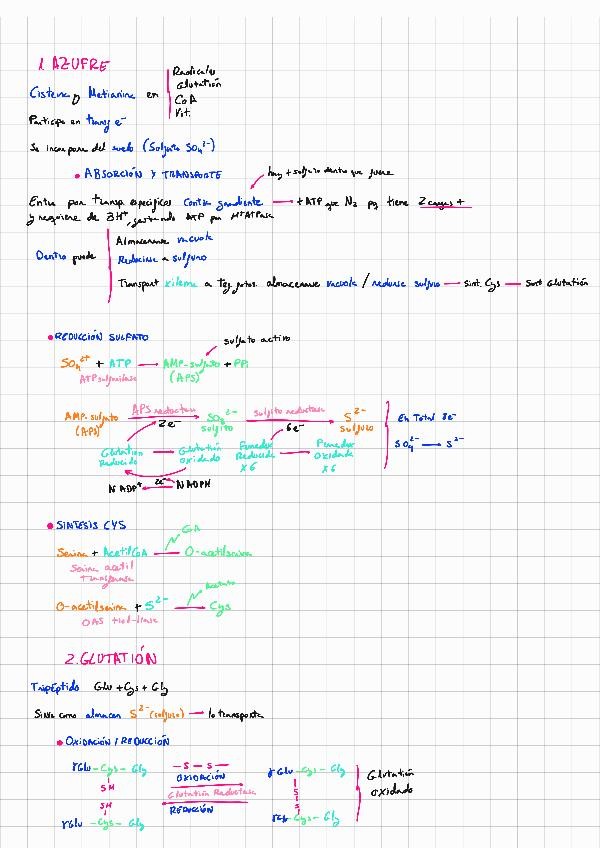 1. AZUFRE
Cisteína y Metionina en
Radicales
Glutatión
CoA
Vit.
Participa en transp e⁻
Se incorpora del suelo (Sulfato SO₄²⁻)
• ABSORCIÓN Y TRANSPORTE
hay + sulfato dentro que fuera
Entra por transp. específicos contra gradiente → + ATP que N₂ pq tiene 2 cargas +
y requiere de 3H⁺, gastando ATP por H⁺ATPasa
Dentro puede
Almacenarse vacuola
Reducirse a sulfuro
Transport xilema a Tej. fotos. almacenarse vacuola / reducirse sulfuro — Sint. Cys — Sint Glutatión
• REDUCCIÓN SULFATO
sulfato activo
SO₄²⁺ + ATP → AMP-sulfato + PPi
ATP sulfurilasa (APS)
AMP-sulfato APS reductasa SO₃²⁻ Sulfito reductasa S²⁻
(APS) 2e⁻ sulfito 6e⁻ sulfuro
En Total 8e⁻
SO₄²⁻ → S²⁻
Glutation Reducido — Glutation oxidado
Ferredox Reducida x6 — Ferredox Oxidada x6
NADP⁺ 2e⁻ NADPH
• SINTESIS CYS
CoA
Serina + AcetilCoA — O-acetilserina
Serina acetil
transferasa
Acetato
O-acetilserina + S²⁻ — Cys
OAS tiol-liasa
2. GLUTATIÓN
Tripéptido Glu + Cys + Gly
Sirve como almacen S²⁻ (sulfuro) → lo transporta
• OXIDACIÓN / REDUCCIÓN
γGlu - Cys - Gly
SH
SH
γGlu - Cys - Gly
-S-S-
OXIDACIÓN
Glutatión Reductasa
REDUCCIÓN
γGlu - Cys - Gly
S
S
γGlu - Cys - Gly
Glutatión
oxidado